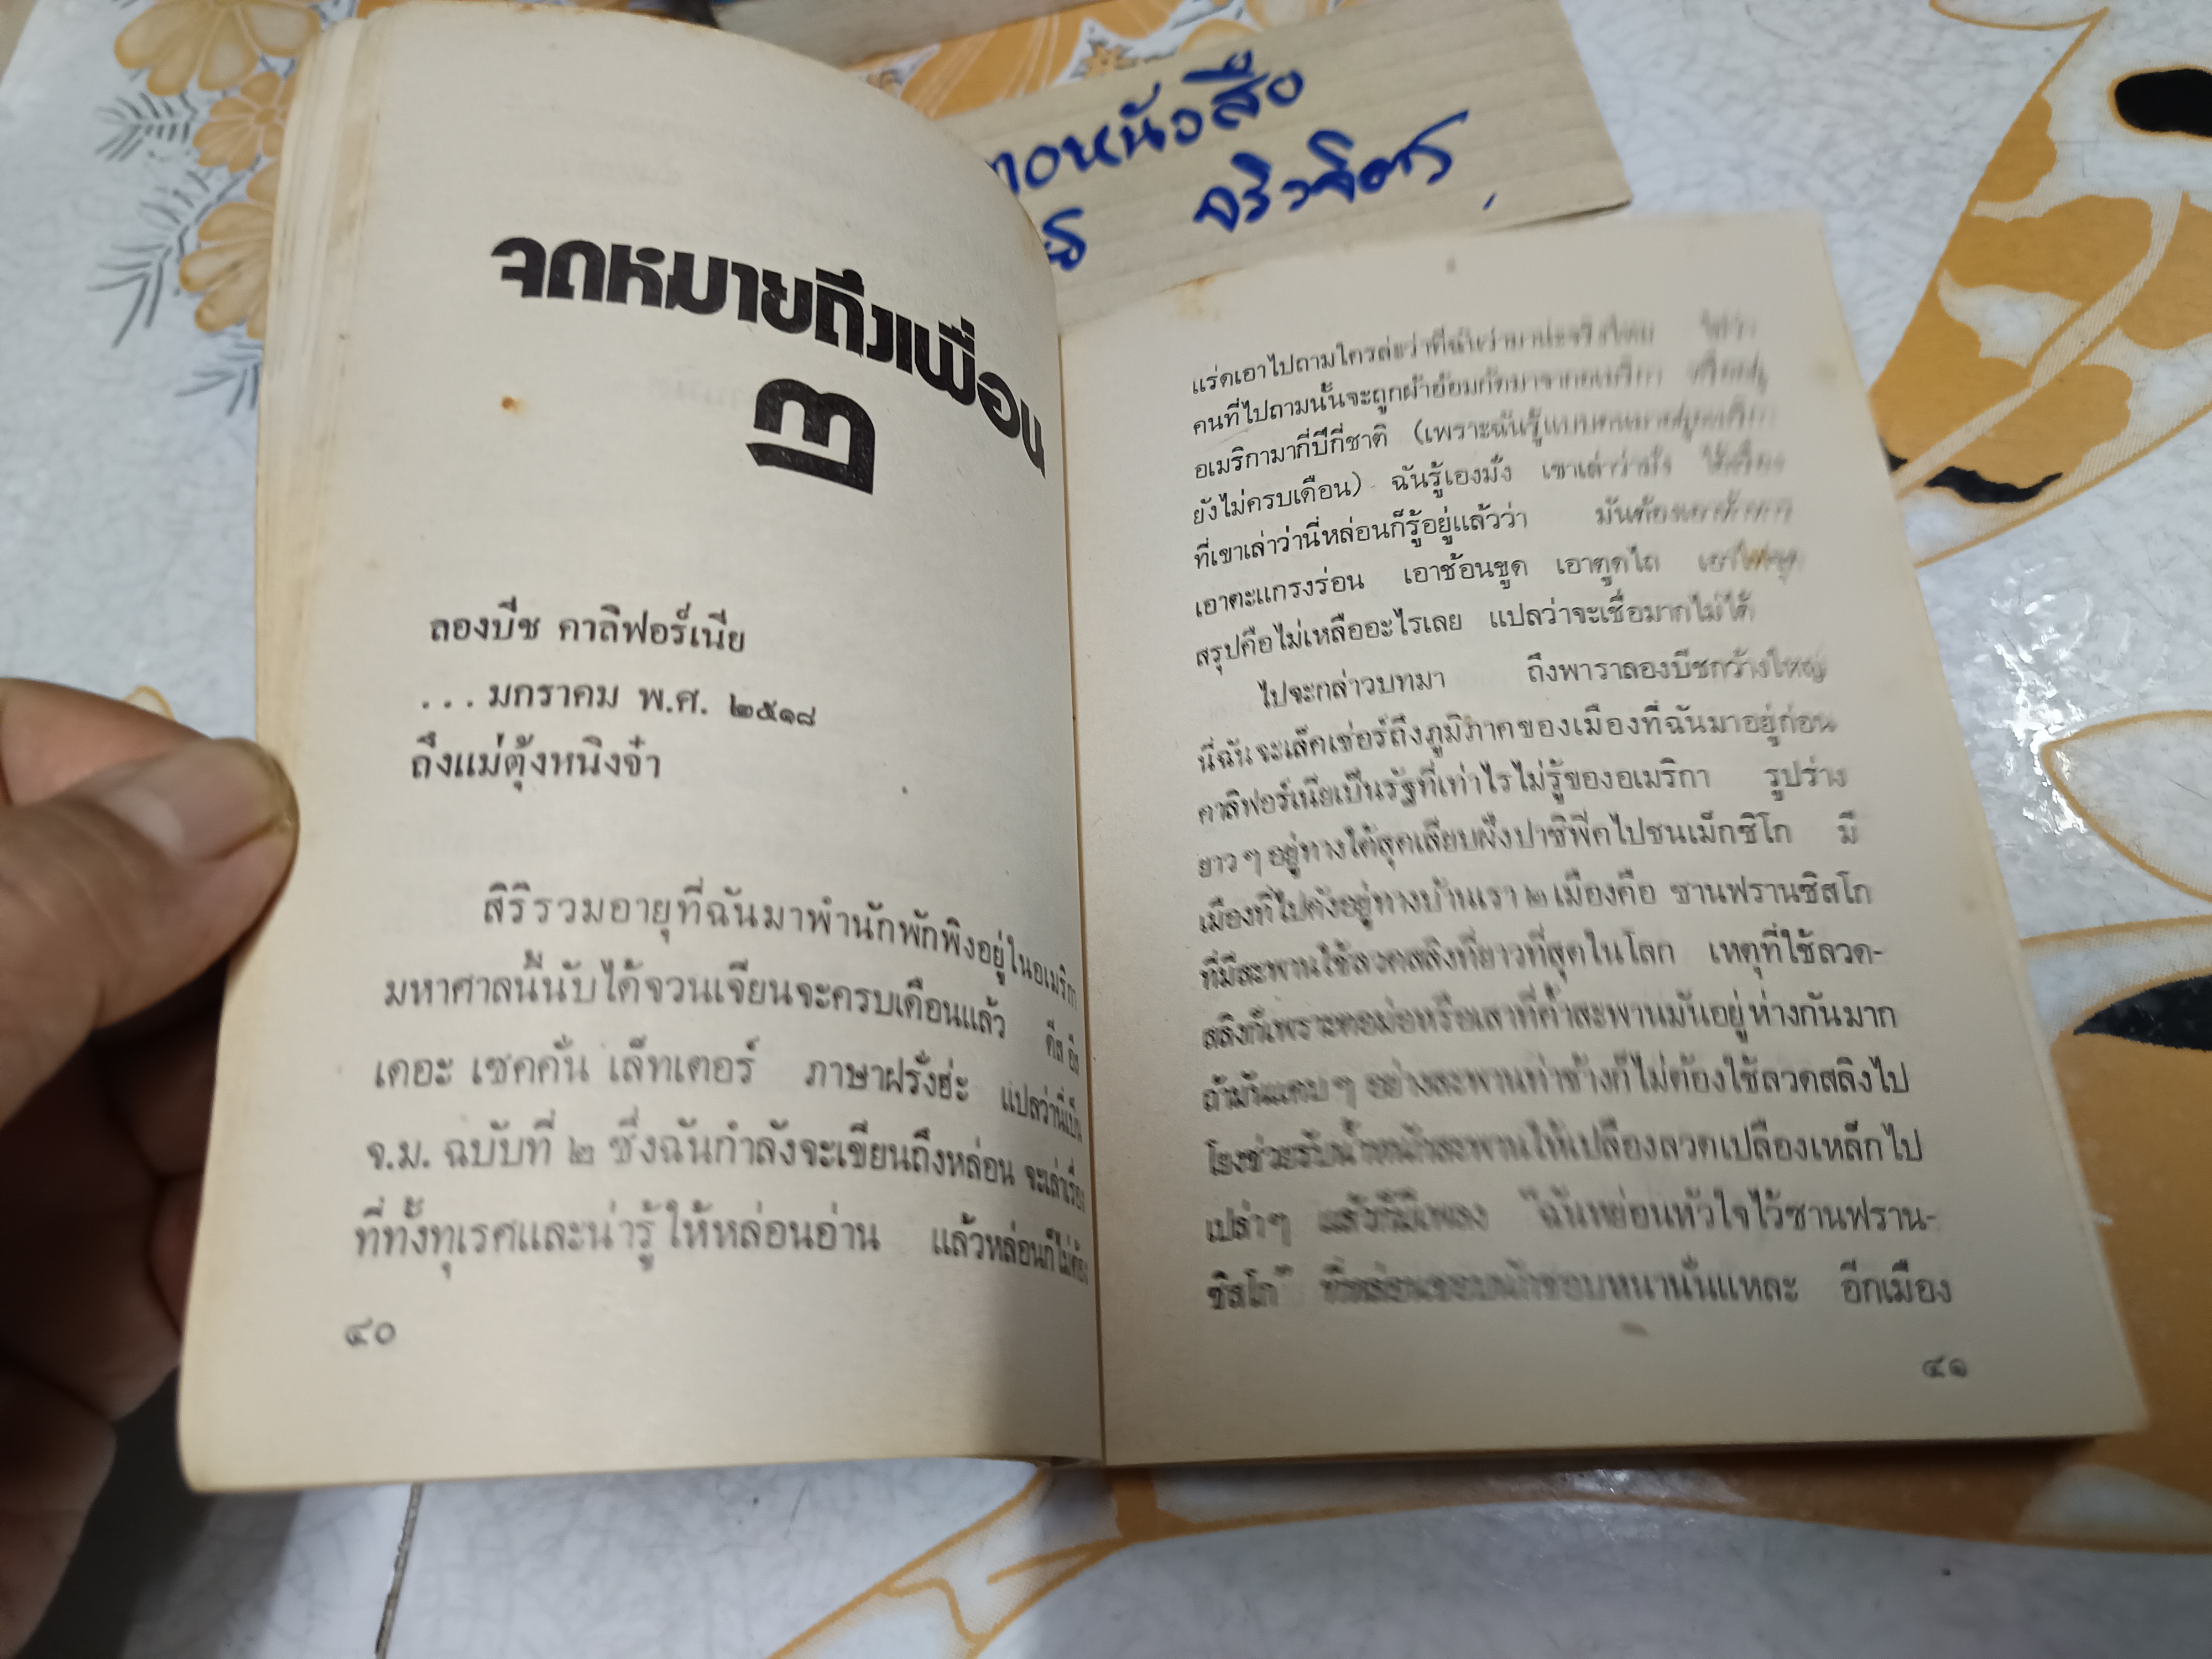 จดหมายถึงเพื่อน
๓
ลองบีช คาลิฟอร์เนีย
... มกราคม พ.ศ. ๒๕๑๘
ถึงแม่ตุ้งหนิงจ๋า
สิริรวมอายุที่ฉันมาพำนักพักพิงอยู่ในอเมริกา
มหาศาลนี้นับได้จวนเจียนจะครบเดือนแล้ว ดีส อีส
เดอะ เซคคั่น เล็ทเตอร์ ภาษาฝรั่งฮ่ะ แปลว่านี่เป็น
จ.ม. ฉบับที่ ๒ ซึ่งฉันกำลังจะเขียนถึงหล่อน จะเล่าเรื่อง
ที่ทั้งทุเรศและน่ารู้ให้หล่อนอ่าน แล้วหล่อนก็ไม่ต้อง
๔๐
หนังสือ
จริงจิตร
แร่ดเอาไปถามใครล่ะว่าที่ฉันว่ามาน่ะจริงไหม
คนที่ไปถามนั้นจะถูกผ้าย้อมกัดมาจากอเมริกา
อเมริกามากี่ปีกี่ชาติ (เพราะฉันรู้แบบ
ยังไม่ครบเดือน) ฉันรู้เองมั่ง เขาเล่าว่ามั่ง
ที่เขาเล่าว่านี่หล่อนก็รู้อยู่แล้วว่า มันต้อง
เอาตะแกรงร่อน เอาช้อนขูด เอาตูดไถ
สรุปคือไม่เหลืออะไรเลย แปลว่าจะเชื่อมากไม่ได้
ไปจะกล่าวบทมา ถึงพาราลองบีชกว้างใหญ่
นี่ฉันจะเล็คเช่อร์ถึงภูมิภาคของเมืองที่ฉันมาอยู่ก่อน
คาลิฟอร์เนียเป็นรัฐที่เท่าไรไม่รู้ของอเมริกา รูปร่าง
ยาวๆ อยู่ทางใต้สุดเลียบฝั่งปาซิพี่คไปชนเม็กซิโก มี
เมืองที่ไปดังอยู่ทางบ้านเรา ๒ เมืองคือ ซานฟรานซิสโก
ที่มีสะพานใช้ลวดสลิงที่ยาวที่สุดในโลก เหตุที่ใช้ลวด-
สลิงก็เพราะตอม่อหรือเสาที่ค้ำสะพานมันอยู่ห่างกันมาก
ถ้ามันแคบๆ อย่างสะพานท่าช้างก็ไม่ต้องใช้ลวดสลิงไป
โยงช่วยรับน้ำหนักสะพานให้เปลืองลวดเปลืองเหล็กไป
เปล่าๆ แล้วก็มีเพลง "ฉันหย่อนหัวใจไว้ซานฟราน-
ซิสโก" ที่หล่อนชอบนักชอบหนานั่นแหละ อีกเมือง
๔๑